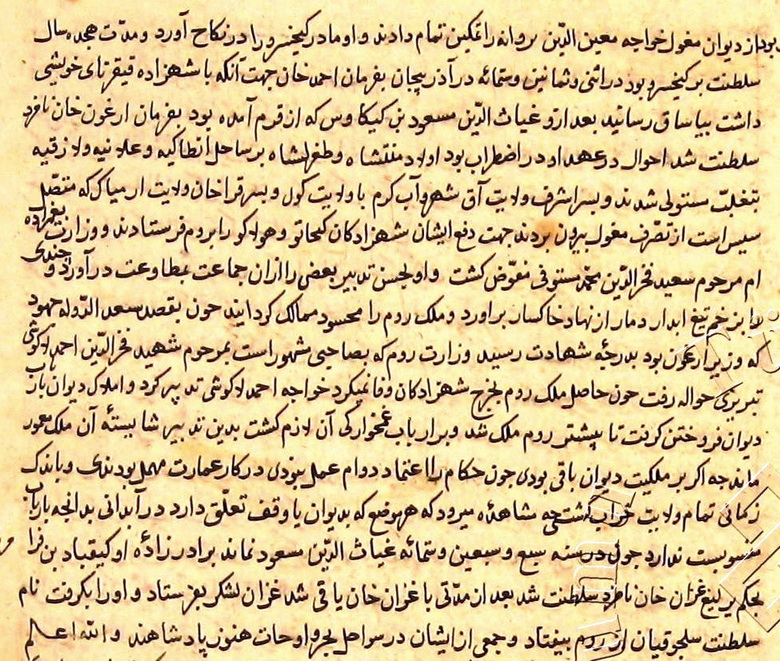 بود از دیوان مغول خواجه معین الدّین پروانه را تمکین تمام دادند و او مادر کیخسرو را در نکاح آورد و مدّت هجده سال
سلطنت بر کیخسرو بود در اثنی و ثمانین و ستمائه در آذربیجان بفرمان احمد خان جهت آنکه با شهزاده قنقرتای خویشی
داشت بیاساق رسانید بعد ازو غیاث الدّین مسعود بن کیکاوس که از قرم آمده بود بفرمان ارغون خان نامزد
سلطنت شد احوال در عهد او در اضطراب بود اولاد منتشاه و طغرلشاه بر ساحل انطاکیه و علانیه و لاذقیه
بتغلّب مستولی شدند و پسر اشرف ولایت آق شهر و آب کرم با ولایت کول و پسر قراخان ولایت ارمناک که متصل
سیس است از تصرّف مغول بیرون بردند جهت دفع ایشان شهزادکان کیخاتو و هولاکو را بروم فرستادند و وزارت بعمزاده
ام مرحوم سعید فخر الدّین محمد مستوفی مفوّض کشت و او بحسن تدبیر بعضی را از ان جماعت بمطاوعت در آورد و چندی
را بزخم تیغ ابدار دمار از نهاد خاکسار براورد و ملک روم را محسود ممالک کردانید جون بقصد سعد الدّوله جهود
که وزیر ارغون بود بدرجه شهادت رسید وزارت روم که بصاحبی مشهور است بمرحوم شهید فخر الدّین احمد لاکوشی
تبریزی حواله رفت جون حاصل ملک روم بخرج شهزادکان وفا نمیکرد خواجه احمد لاکوشی تدبیر کرد و املاک دیوان باز
دیوان فروختن کرفت تا بیشتر روم ملک شد و بر ارباب غمخوارکی آن لازم کشت بدین تدبیر شایسته آن ملک معمور
ماند جه اکر بر ملکیت دیوان باقی بودی جون حکام را اعتماد دوام عمل نبودی در کار عمارت مهمل بودندی و باندک
زمانی تمام ولایت خراب کشتی جه مشاهده میرود که هر موضع که بدیوان یا وقف تعلّق دارد در آبدانی بدانجه بارباب
منسوبست ندارد جون در سنه سبع و سبعین و ستمائه غیاث الدّین مسعود نماند برادرزاده او کیقباد بن فرا
بحکم یرلیغ غزان خان نامزد سلطنت شد بعد از مدّتی با غزان خان یاقی شد غزان لشکر بفرستاد و او را بکرفت نام
سلطنت سلجوقیان از روم بیفتاد و جمعی از ایشان در سواحل بحر و اوجات هنوز پادشاهند و الله اعلم